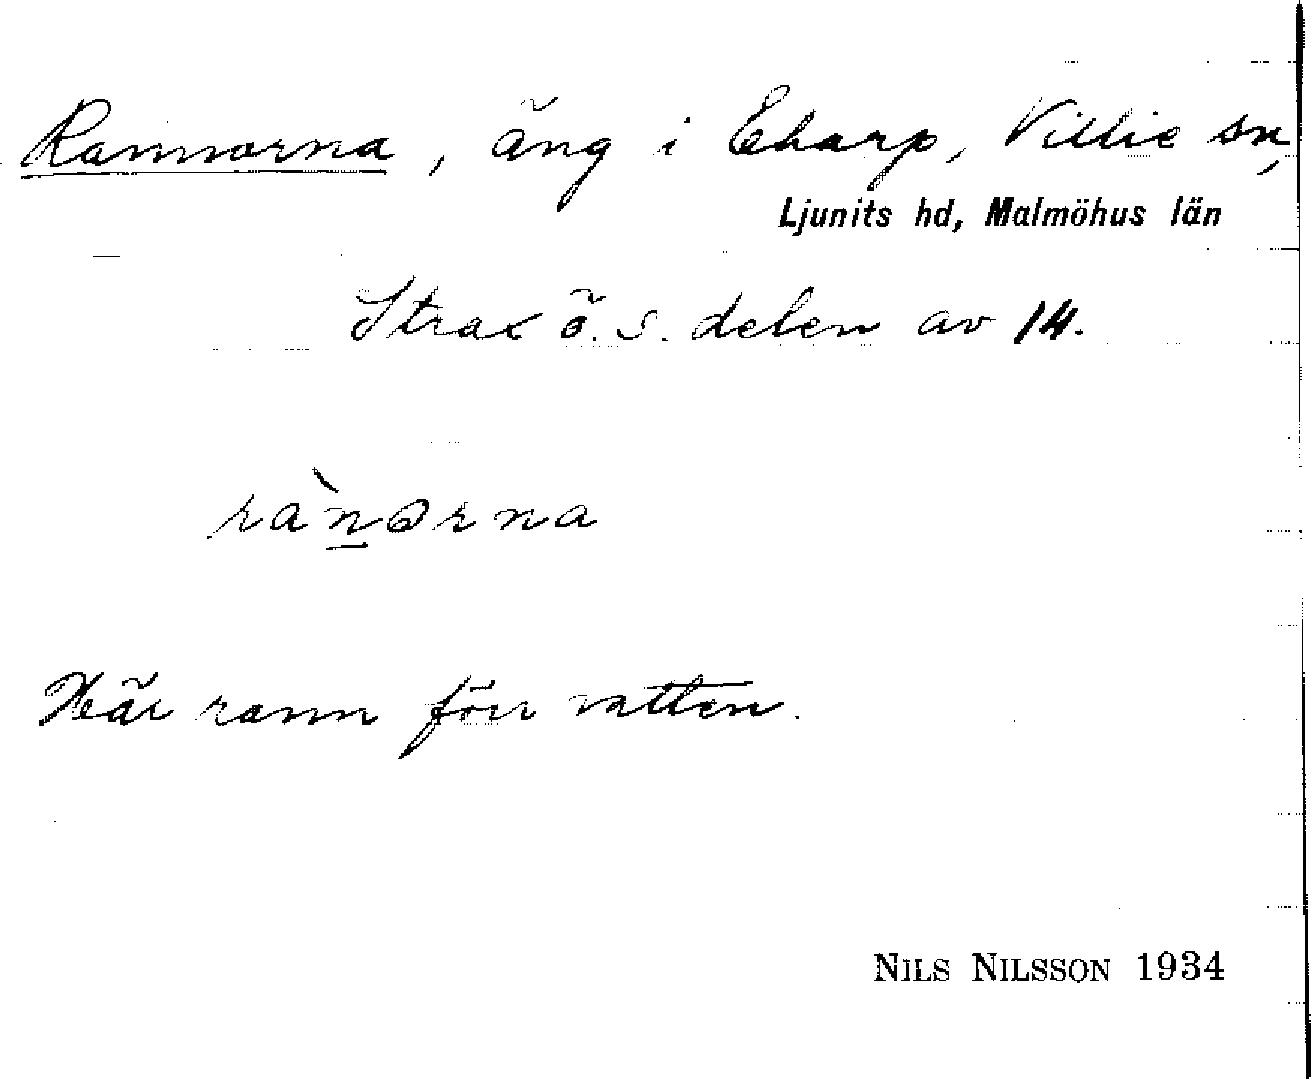 Rannorna, äng i Eharp, Villie sn,
Ljunits hd, Malmöhus län
Strax ö. s. delen av 14.
rànərna
Här rann förr vatten.
NILS NILSSON 1934